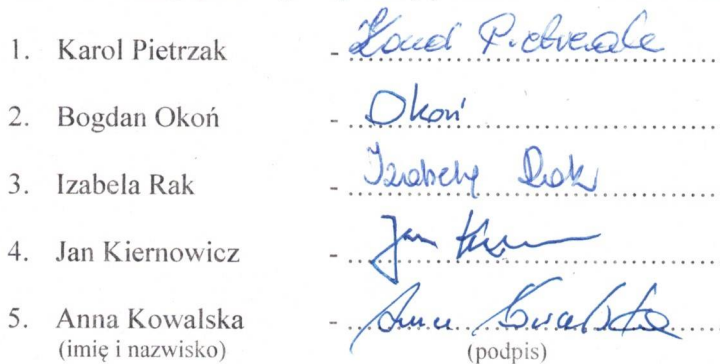 1. Karol Pietrzak - Karol Pietrzak
2. Bogdan Okoń - Okoń
3. Izabela Rak - Izabela Rak
4. Jan Kiernowicz - Jan
5. Anna Kowalska - Anna Kowalska
(imię i nazwisko) (podpis)